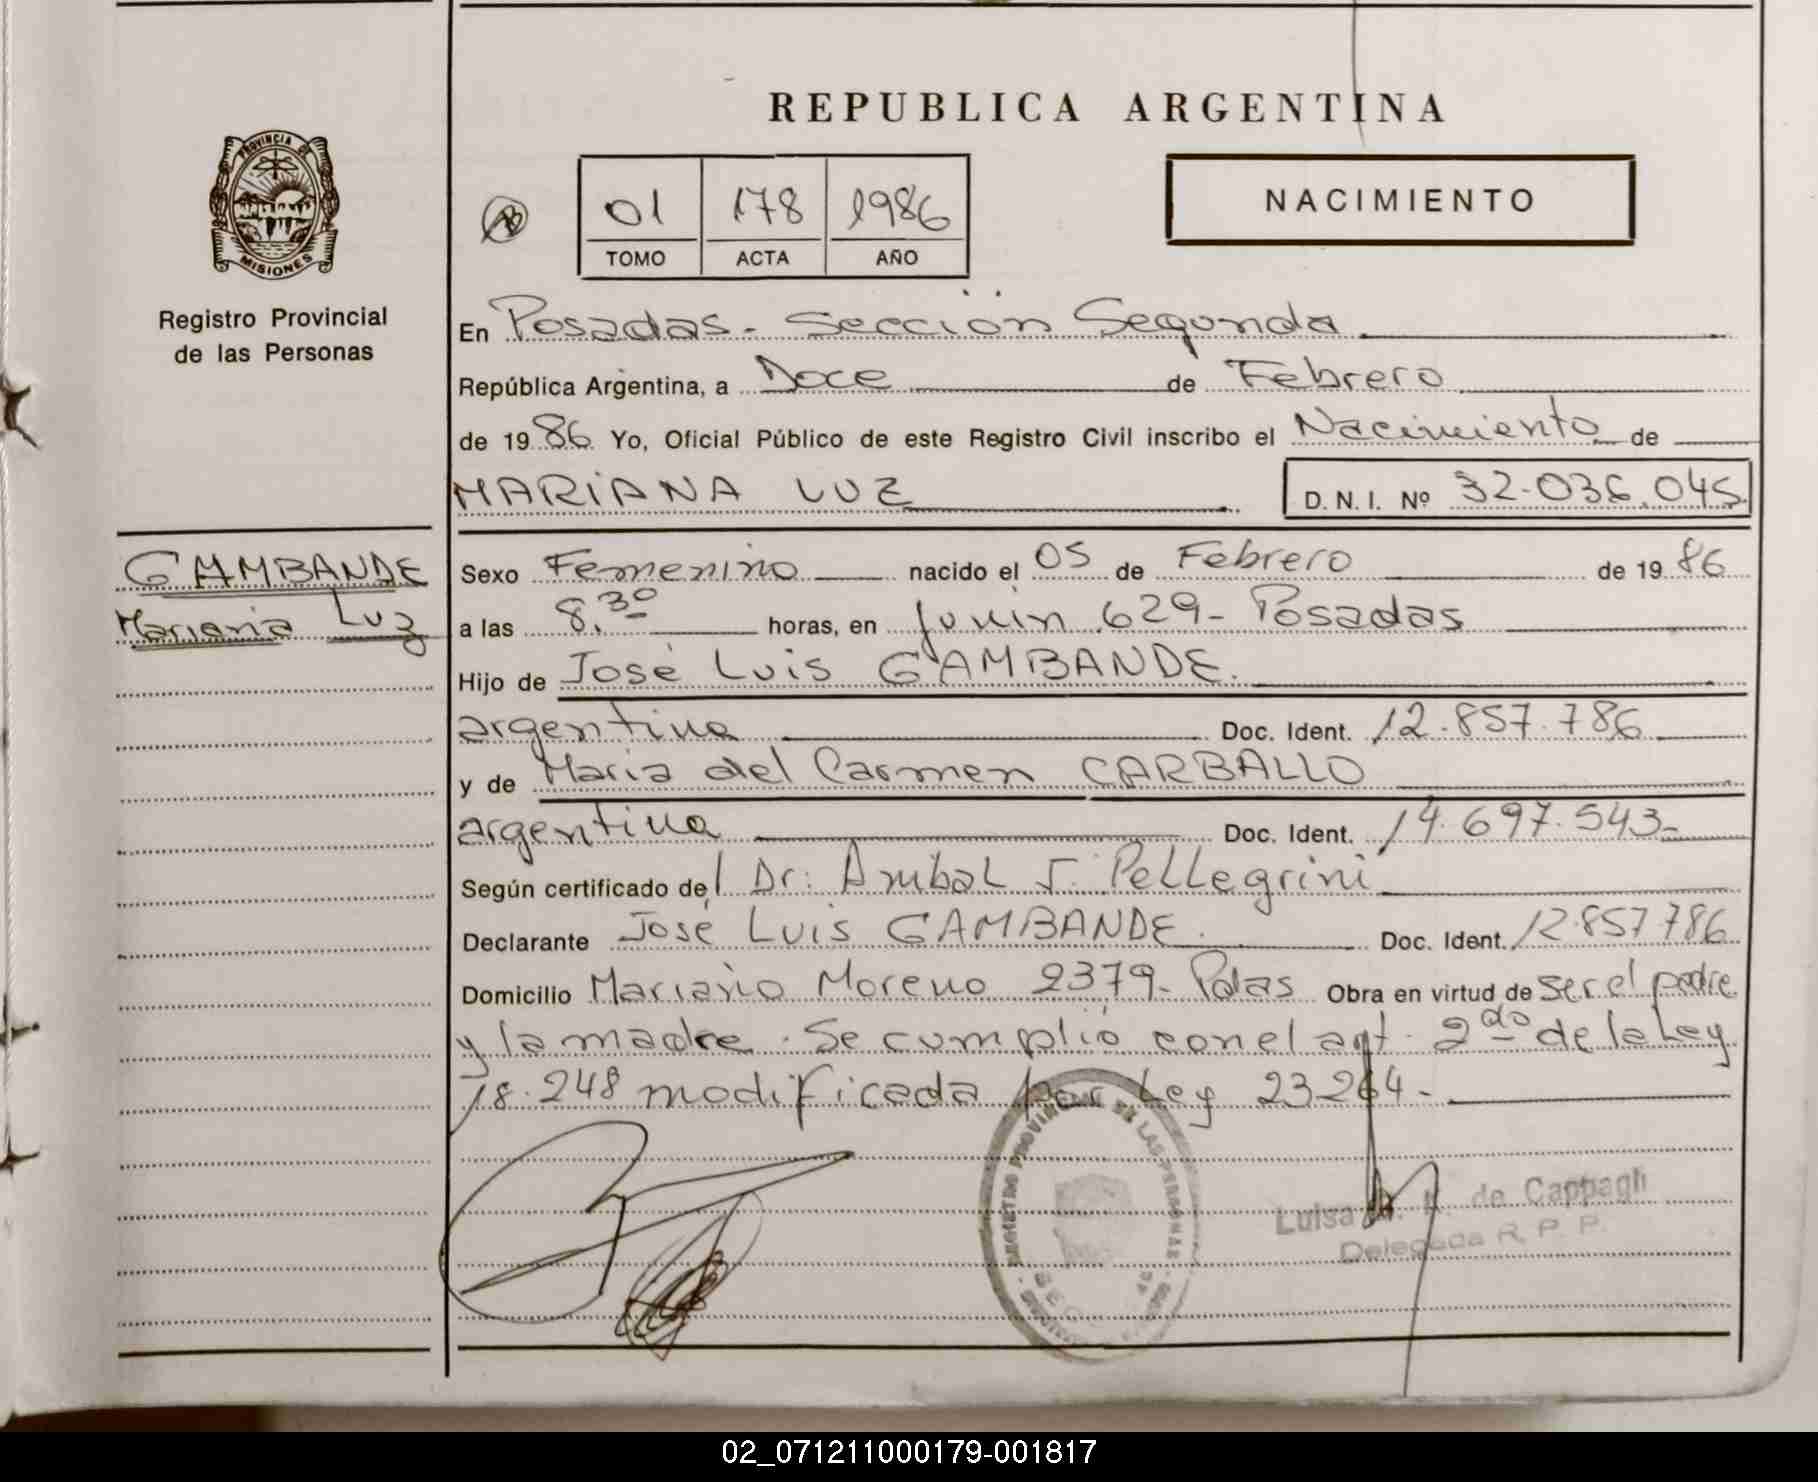 REPUBLICA ARGENTINA
PROVINCIA DE
MISIONES
Registro Provincial
de las Personas
01 178 1986
TOMO ACTA AÑO
NACIMIENTO
En Posadas - Sección Segunda
República Argentina, a Doce de Febrero
de 19 86 Yo, Oficial Público de este Registro Civil inscribo el Nacimiento de
MARIANA LUZ D. N. I. Nº 32.036.045
GAMBANDE
Mariana Luz
Sexo Femenino nacido el 05 de Febrero de 19 86
a las 8,30 horas, en Junin 629 - Posadas
Hijo de José Luis GAMBANDE.
argentina Doc. Ident. 12.857.786
y de Maria del Carmen CARBALLO
argentina Doc. Ident. 14.697.543-
Según certificado del Dr: Anibal J. Pellegrini
Declarante José Luis GAMBANDE. Doc. Ident. 12.857786
Domicilio Mariano Moreno 2379- Pdas Obra en virtud de ser el padre
y la madre. Se cumplió con el art. 2do de la Ley
18.248 modificada por Ley 23264-
REGISTRO PROVINCIAL DE LAS PERSONAS
Luisa de Cappagli
Delegada R. P. P.
02_071211000179-001817